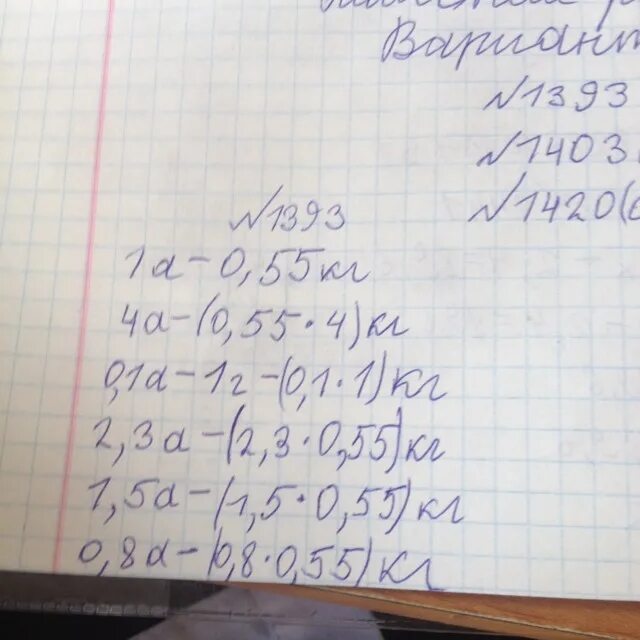 Вариант
№1393
№1403
№1420(
№1393
1а-0,55кг
4а-(0,55·4)кг
0,1а-1г-(0,1·1)кг
2,3а-(2,3·0,55)кг
1,5а-(1,5·0,55)кг
0,8а-(0,8·0,55)кг